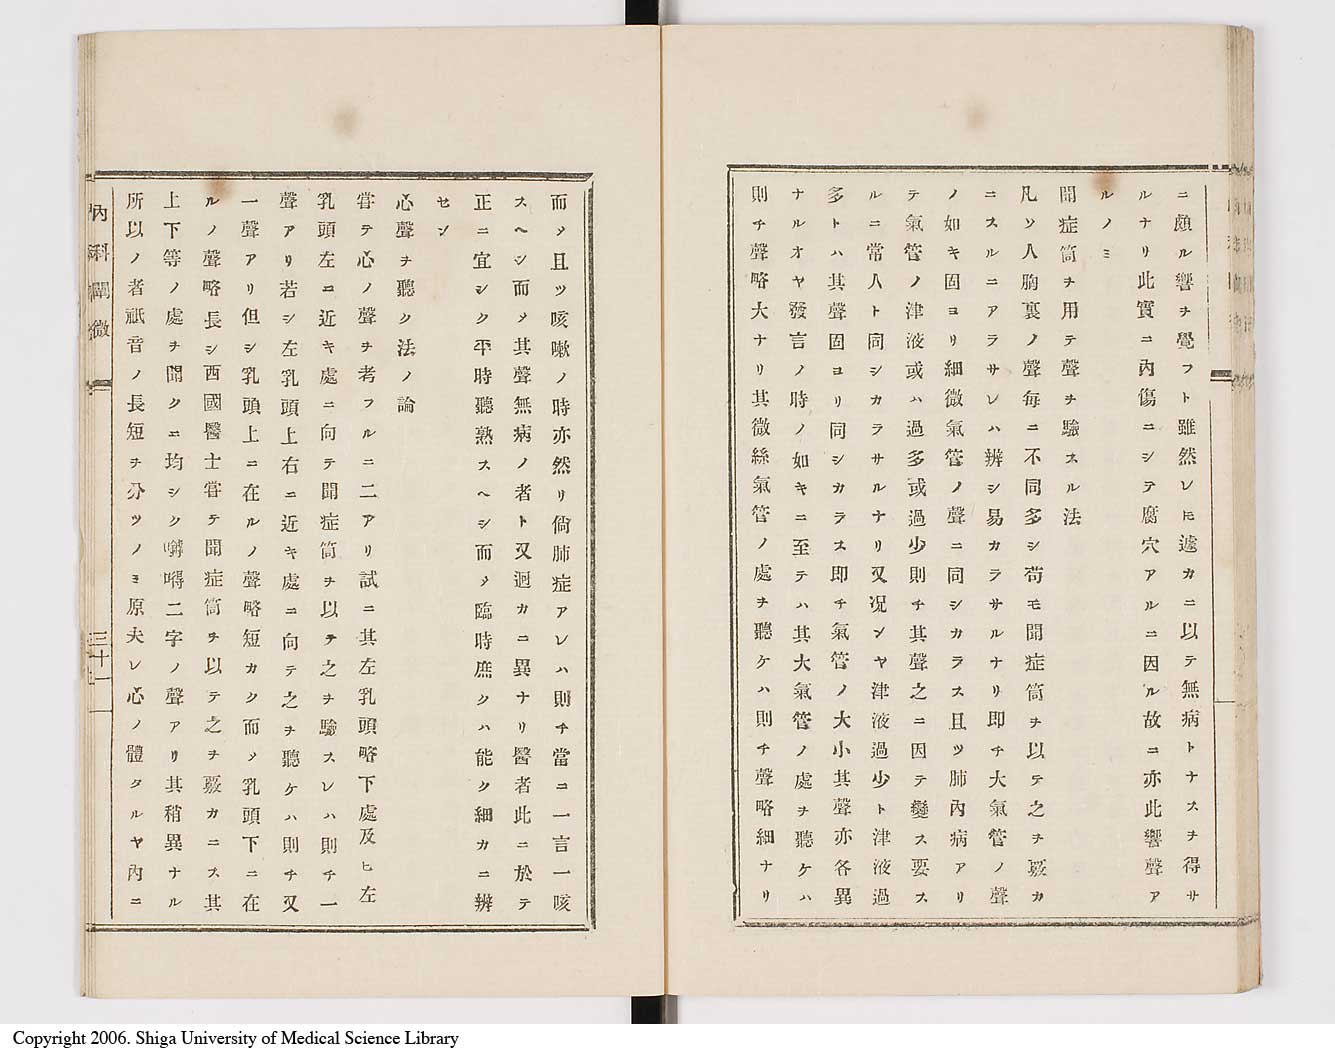 ニ頗ル響ヲ覺フト雖然レ𪜈遽カニ以テ無病トナスヲ得サ
ルナリ此實ニ內傷ニシテ腐穴アルニ因ル故ニ亦此響聲ア
ルノミ
聞症筒ヲ用テ聲ヲ驗スル法
凡ソ人胸裏ノ聲每ニ不同多シ苟モ聞症筒ヲ以テ之ヲ覈カ
ニスルニアラサレハ辨シ易カラサルナリ即チ大氣管ノ聲
ノ如キ固ヨリ細微氣管ノ聲ニ同シカラス且ツ肺內病アリ
テ氣管ノ津液或ハ過多或過少則チ其聲之ニ因テ變ス要ス
ルニ常人ト同シカラサルナリ又況ンヤ津液過少ト津液過
多トハ其聲固ヨリ同シカラス即チ氣管ノ大小其聲亦各異
ナルオヤ發言ノ時ノ如キニ至テハ其大氣管ノ處ヲ聽ケハ
則チ聲略大ナリ其微絲氣管ノ處ヲ聽ケハ則チ聲略細ナリ
而ノ且ツ咳嗽ノ時亦然リ倘肺症アレハ則チ當ニ一言一咳
スヘシ而ノ其聲無病ノ者ト又迥カニ異ナリ醫者此ニ於テ
正ニ宜シク平時聽熟スヘシ而ノ臨時庶クハ能ク細カニ辨
セン
心聲ヲ聽ク法ノ論
嘗テ心ノ聲ヲ考フルニ二アリ試ニ其左乳頭略下處及ヒ左
乳頭左ニ近キ處ニ向テ聞症筒ヲ以テ之ヲ驗スレハ則チ一
聲アリ若シ左乳頭上右ニ近キ處ニ向テ之ヲ聽ケハ則チ又
一聲アリ但シ乳頭上ニ在ルノ聲略短カク而ノ乳頭下ニ在
ルノ聲略長シ西國醫士嘗テ聞症筒ヲ以テ之ヲ覈カニス其
上下等ノ處ヲ聞クニ均シク嘟嘚二字ノ聲アリ其稍異ナル
所以ノ者祇音ノ長短ヲ分ツノミ原夫レ心ノ體タルヤ內ニ
內科闡微
三十一
Copyright 2006. Shiga University of Medical Science Library